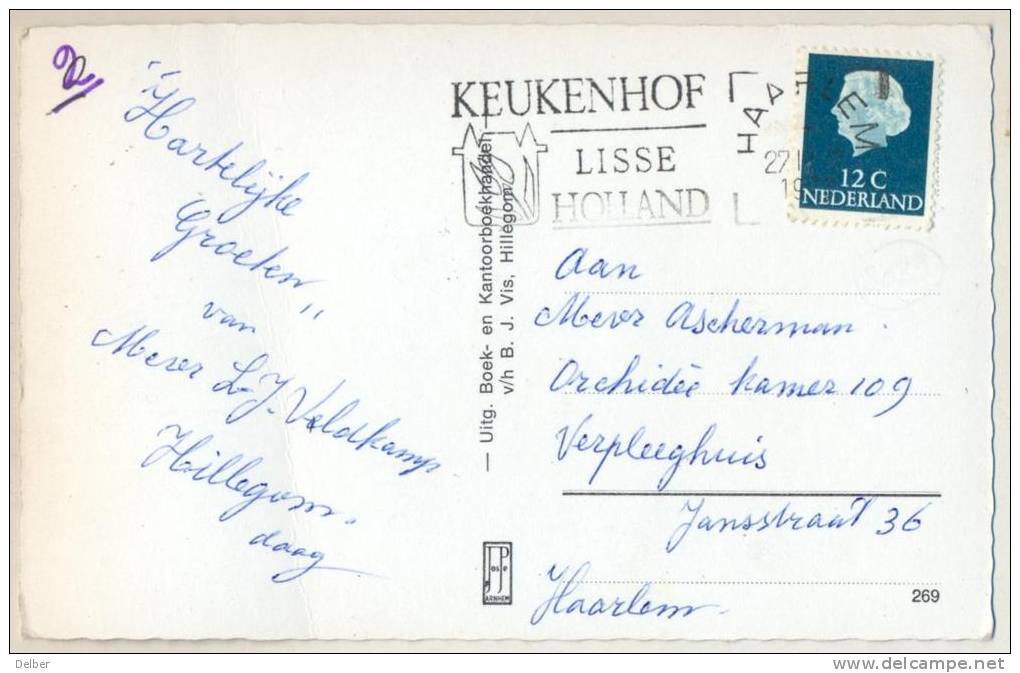 "Hartelijke
Groeten"
van
Mevr L.J. Veldkamp
Hillegom.
daag
KEUKENHOF
LISSE
HOLLAND
HAARLEM
27
19
12 C
NEDERLAND
— Uitg. Boek- en Kantoorboekhandel
v/h B. J. Vis. Hillegom
Aan
Mevr Ascherman
Orchidée kamer 109
Verpleeghuis
Jansstraat 36
Haarlem
JosPe
ARNHEM
269
Delber
www.delcampe.net